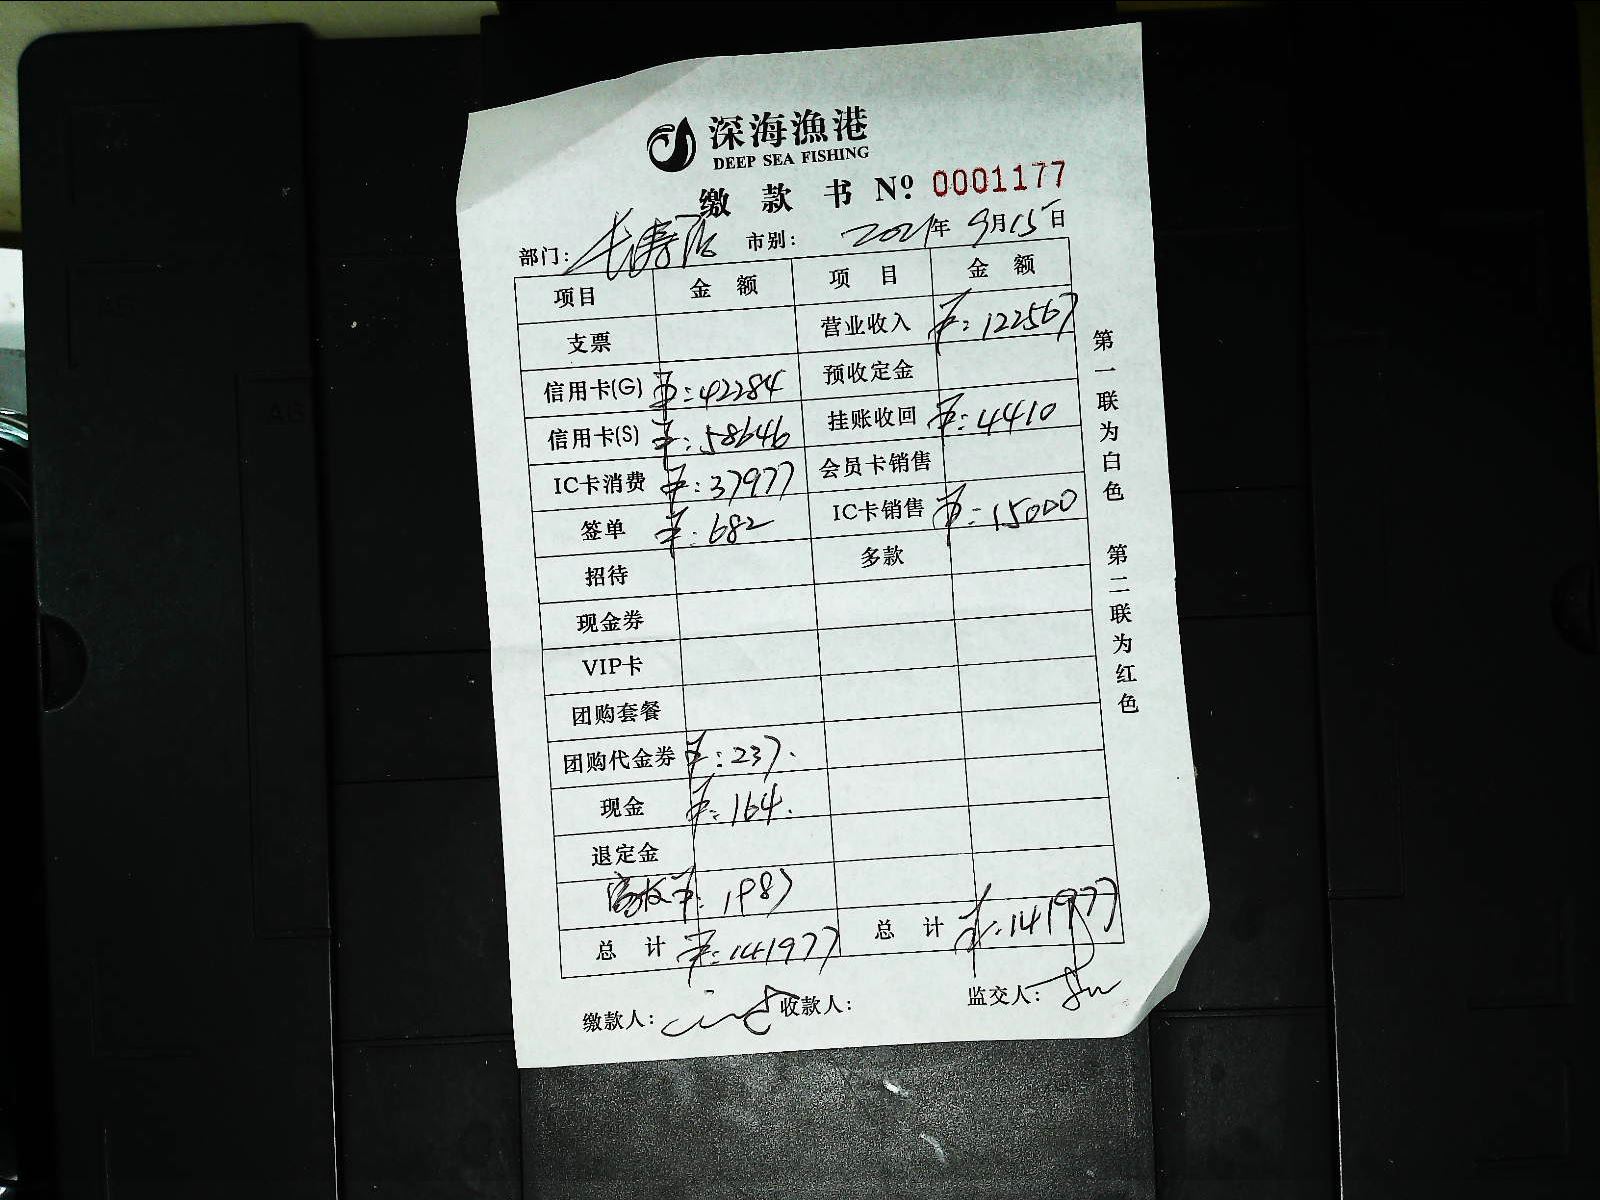 深海漁港
DEEP SEA FISHING
缴款书 Nº 0001177
部门: 长寿店 市别: 2021年9月15日
项目 金额 项目 金额
支票 营业收入 ¥:122567
信用卡(G) ¥:42284 预收定金
信用卡(S) ¥:58646 挂账收回 ¥:4410
IC卡消费 ¥:37977 会员卡销售
签单 ¥:682 IC卡销售 ¥:15000
招待 多款
现金券
VIP卡
团购套餐
团购代金券 ¥:237.
现金 ¥:164.
退定金
¥:1987
总计 ¥:141977 总计 ¥:141977
缴款人: 收款人: 监交人:
第一联为白色 第二联为红色